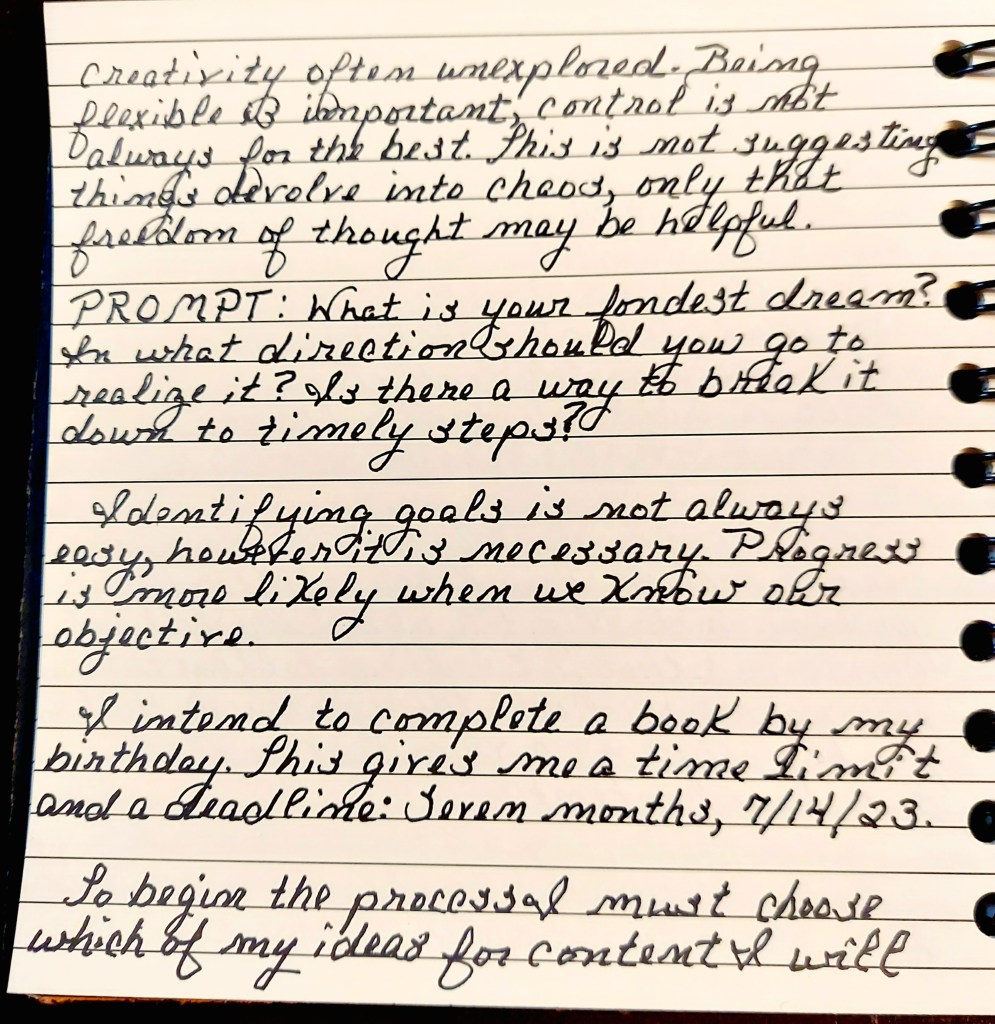 Creativity often unexplored. Being
flexible is important, control is not
always for the best. This is not suggesting
things devolve into chaos, only that
freedom of thought may be helpful.
PROMPT: What is your fondest dream?
In what direction should you go to
realize it? Is there a way to break it
down to timely steps?
Identifying goals is not always
easy, however it is necessary. Progress
is more likely when we know our
objective.
I intend to complete a book by my
birthday. This gives me a time limit
and a deadline: Seven months, 7/14/23.
To begin the process I must choose
which of my ideas for content I will